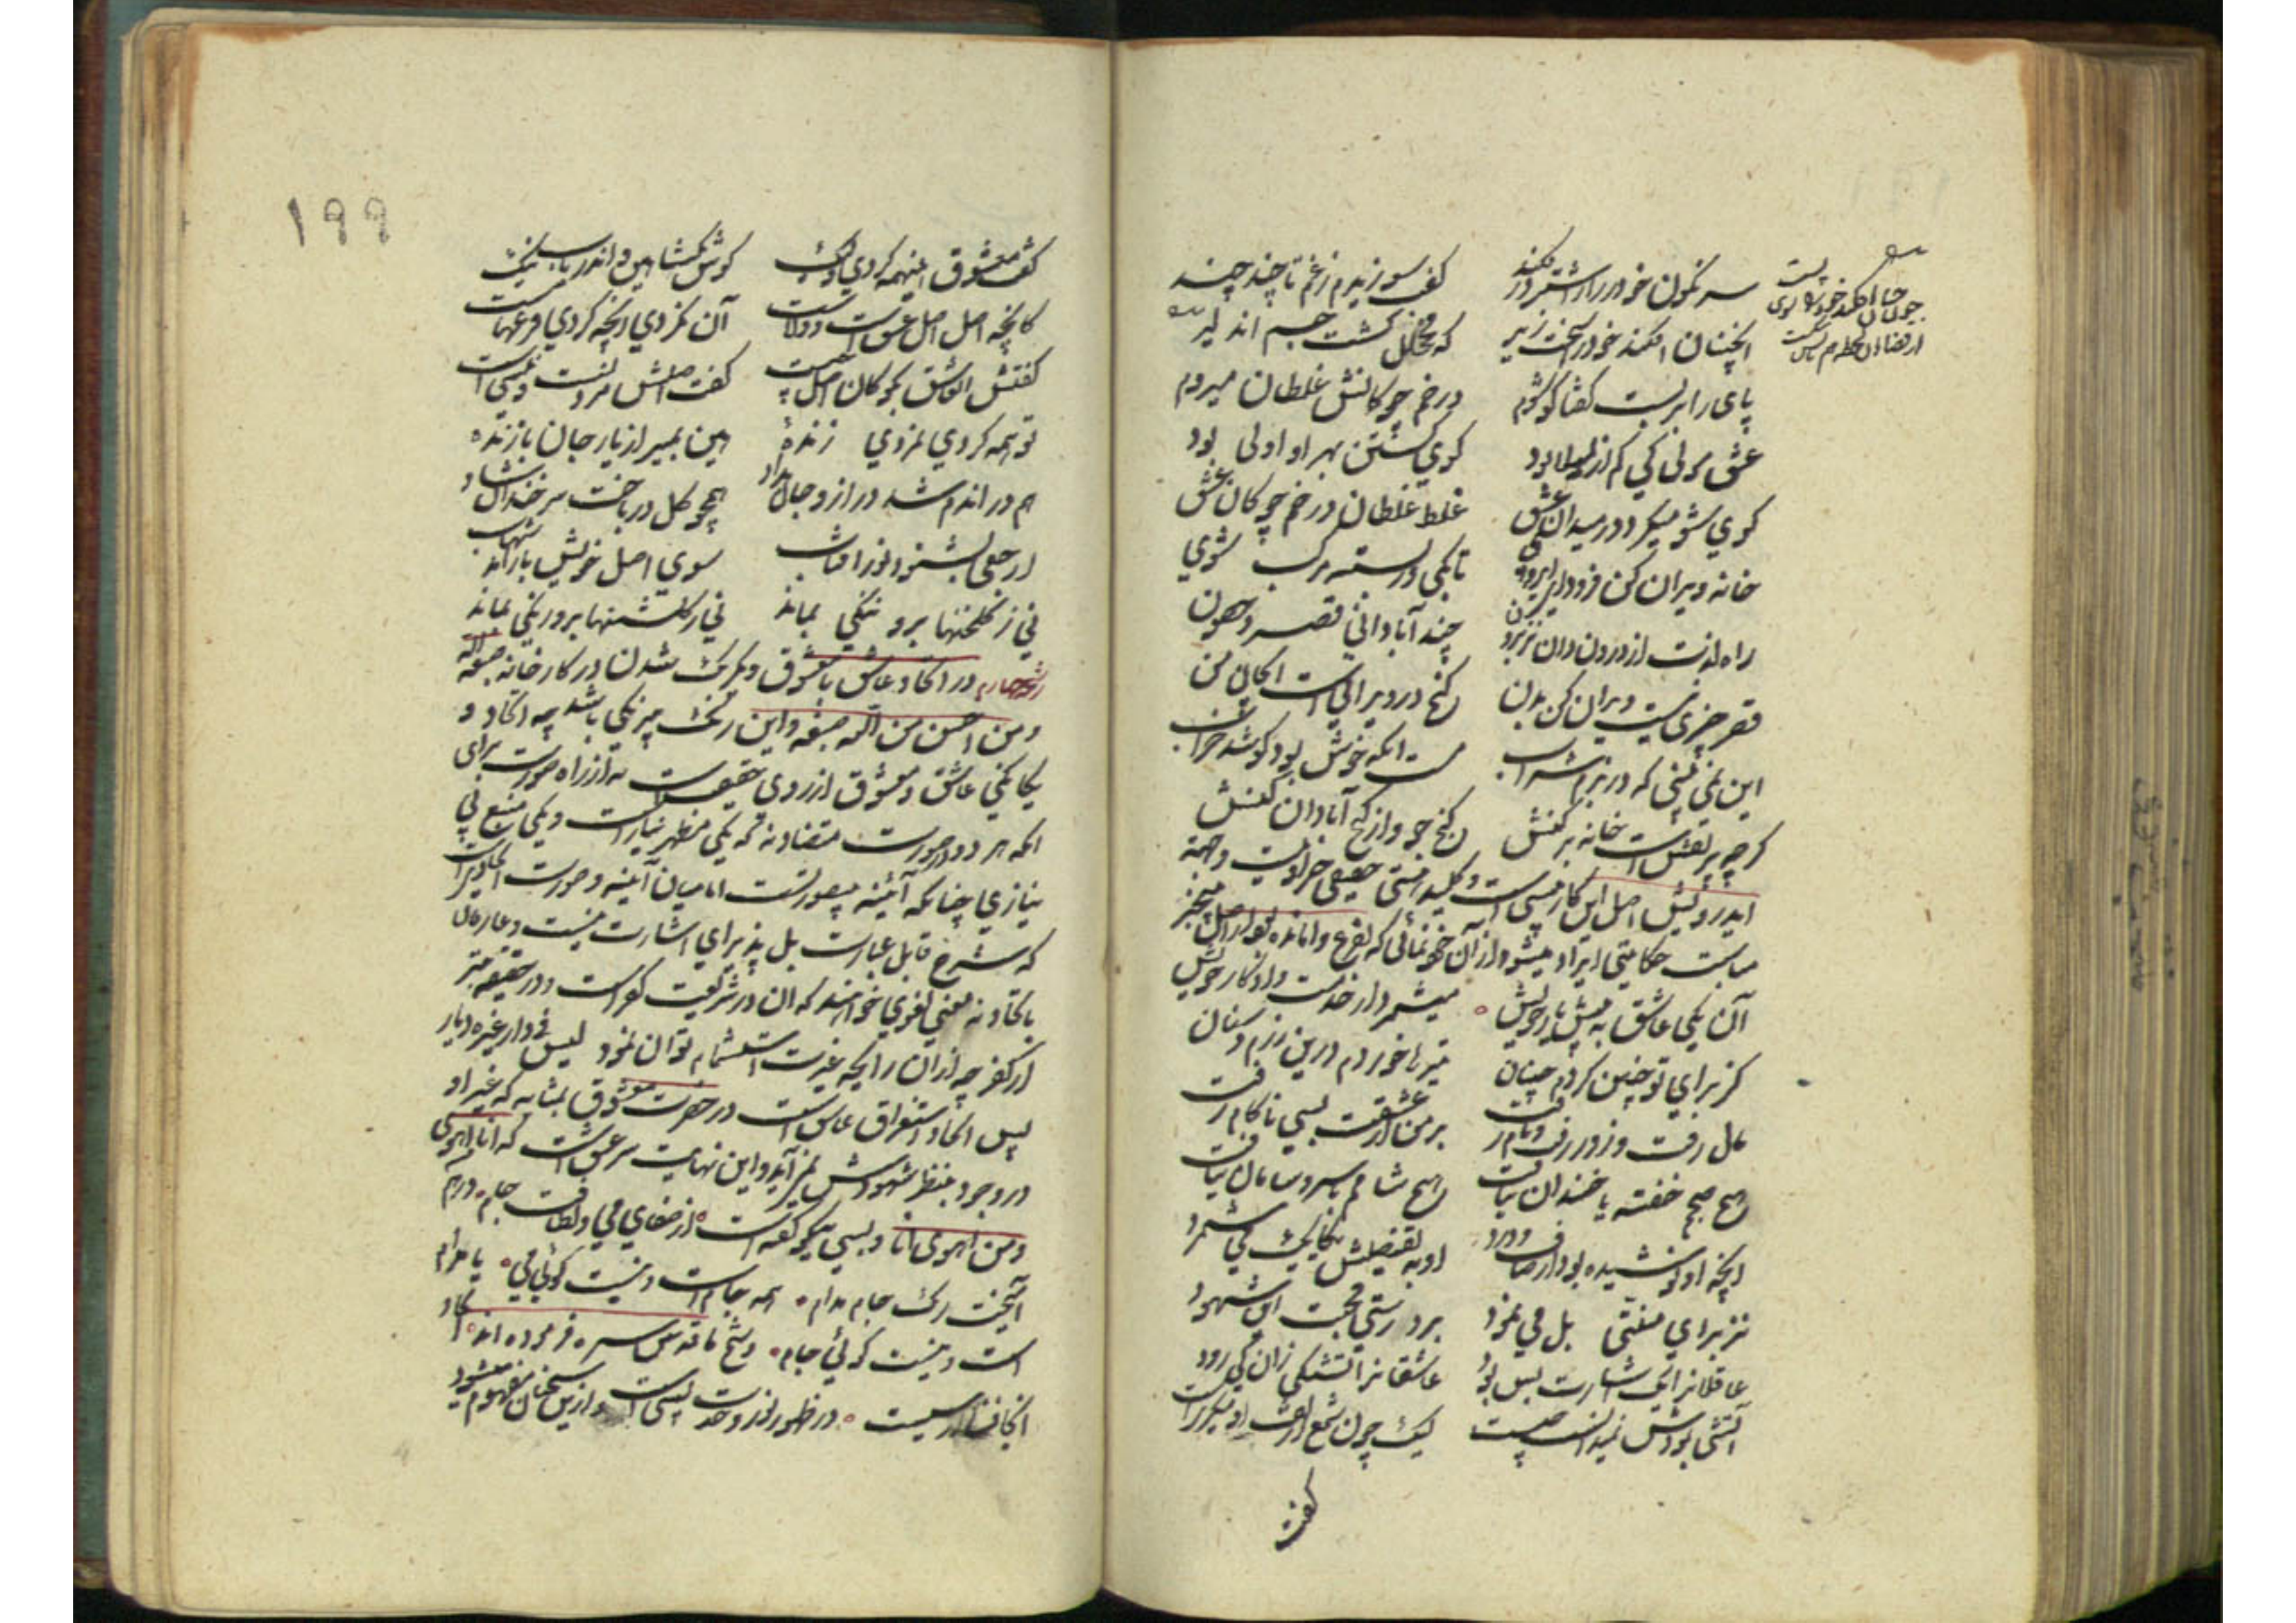 سرنگون خود را ز اشتر در فکند گفت سوزیدم ز غم تا چند چند
آنچنان افکند خود را سخت زیر که مخلخل گشت جسم آن دلیر
چون چنان افکند خود را سوی پست از قضا آن لحظه هم پایش شکست
پای را بربست گفتا گو شوم در خم چوگانش غلطان میروم
عشق مولی کی کم از لیلا بود گوی گشتن بهر او اولی بود
گوی شو میگرد در میدان عشق غلط غلطان در خم چوگان عشق
خانه ویران کن فرود
راه لذت از درون دان نز برون چند آبادانی قصر و حصون
قصر چیزی نیست ویران کن بدن گنج در ویرانیست ای جان من
این نمی بینی که در بزم شراب مست آنگه خوش بود کو شد خراب
گرچه پر نقش است خانه بر کنش گنج جو و از گنج آبادان کنش
ایدرویش اصل این کار نیستی است و کلید هستی حقیقی جز او نیست و
مناسب حکایتی ایراد میشود از آن خودنمائی که بفرع وامانده بود از اصل بیخبر
آن یکی عاشق به پیش یار خویش میشمرد از خدمت و از کار خویش
کز برای تو چنین کردم چنان تیرها خوردم درین رزم و سنان
مال رفت و زور رفت و نام رفت بر من از عشقت بسی ناکام رفت
هیچ صبحم خفته یا خندان نیافت هیچ شامم با سر و سامان نیافت
آنچه او نوشیده بود از صاف و درد او به تفضیلش یکایک می شمرد
نز برای منتی بل می نمود بر درستی محبت این شهود
عاقلانرا یک اشارت بس بود عاشقانرا تشنگی زان کی رود
آتشی بودش نمیدانست چیست لیک چون شمع از تف او میگریست
گفت
۱۹۹
گفت معشوق اینهمه کردی ولیک گوش بگشا پهن و اندر یاب نیک
کانچه اصل اصل عشق است و ولاست آن نکردی آنچه کردی فرعهاست
گفتش آن عاشق بگو کان اصل چیست گفت اصلش مردنست و نیستی است
تو همه کردی نمردی زنده هین بمیر ار یار جان بازنده
هم در آندم شد دراز و جان بداد همچو گل درباخت سر خندان و شاد
ارجعی بشنود نور آفتاب سوی اصل خویش باز آمد شتاب
نی ز گلخنها برو ننگی بماند نی ز گلشنها برو رنگی بماند
در اتحاد عاشق با معشوق و یکرنگ شدن در کارخانه صبغة الله
و من احسن من الله صبغة و این رنگ بیرنگی باشد چه اتحاد و
یگانگی عاشق و معشوق از روی حقیقت است نه از راه صورت برای
آنکه هر دو در صورت متضادند که یکی مظهر نیاز است و یکی منبع بی
نیازی چنانکه آئینه بیصورتست اما میان آئینه و صورت اتحادیست
که شرح قابل عبارت بل پذیرای اشارت نیست و عارفان
باتحاد نه معنی لغوی خواهند که آن در شریعت کفر است و در حقیقت بتر
از کفر چه از آن رایحه غیریت استشمام توان نمود لیس فی الدار غیره دیار
پس اتحاد استغراق عاشق است در حضرت معشوق بمثابه که غیر او
در وجود بنظر شهودش نمی آید و این نهایت سر عشق است که انا من اهوی
و من اهوی انا و بسی نیکو گفته است از صفای می و لطافت جام درهم
آمیخت رنگ جام مدام همه جام است و نیست گوئی می یا مدام
است و نیست گوئی جام و شیخ ما قدس سره فرموده اند اتحاد
اینجا فنا در نیستیست در ظهور نور وحدت نیستی است و ازین سخنان مفهوم میشود